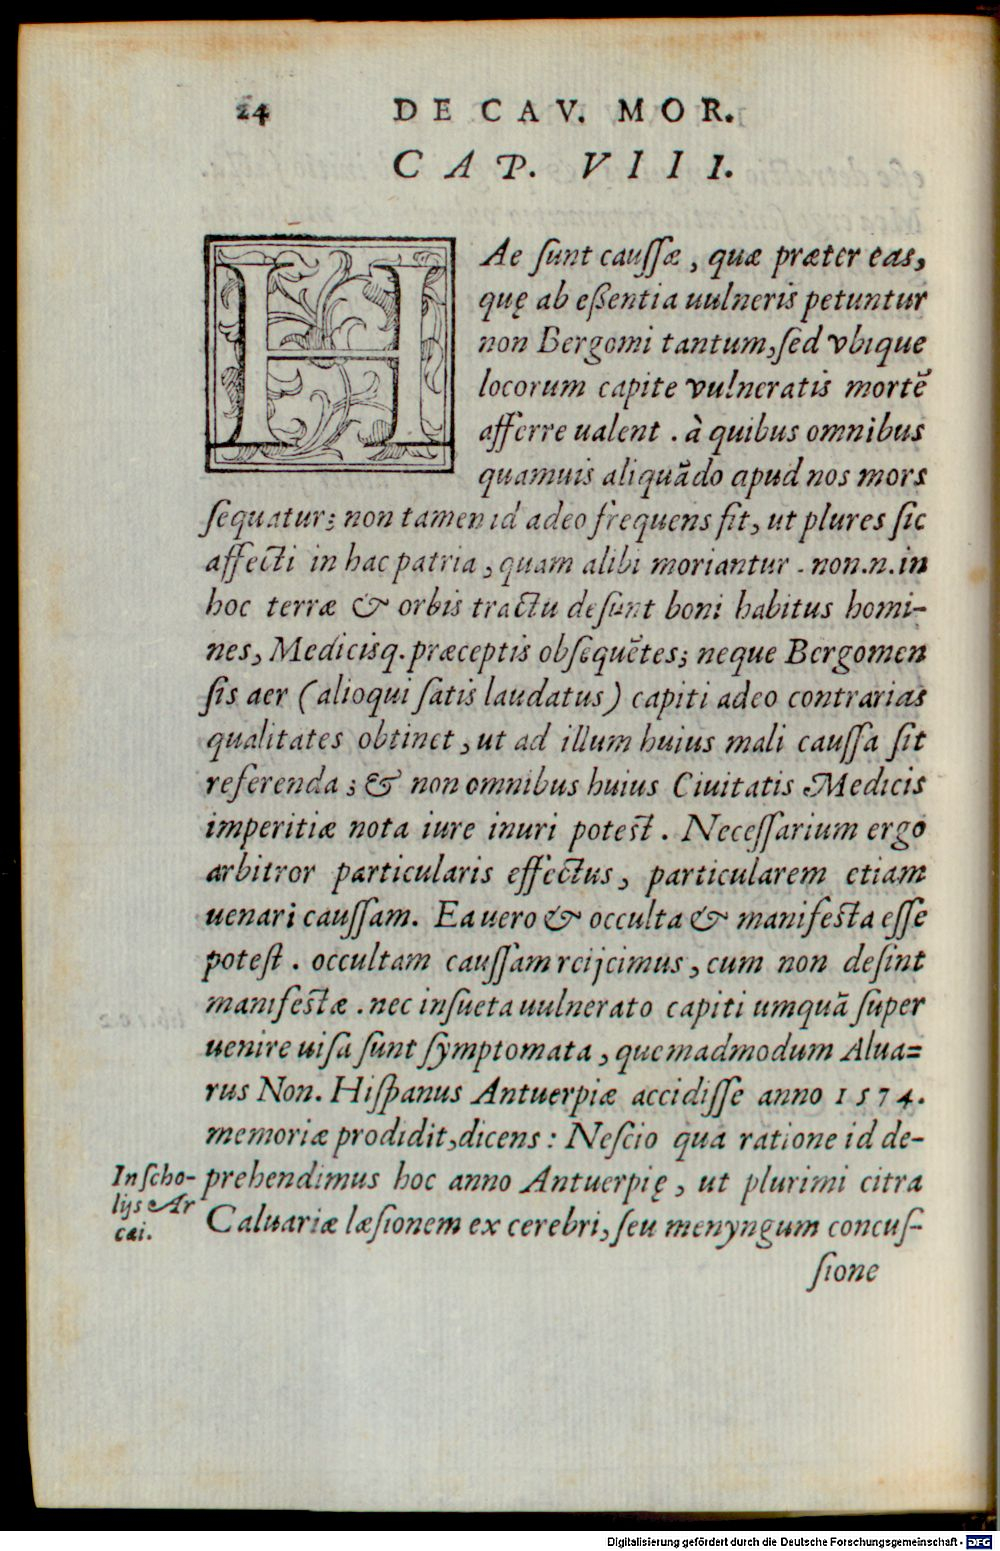 24 DE CAV. MOR.
CAP. VIII.
HAe ſunt cauſſæ, quæ præter eas,
quę ab eßentia uulneris petuntur
non Bergomi tantum, ſed vbique
locorum capite vulneratis mortẽ
afferre ualent. à quibus omnibus
quamuis aliquãdo apud nos mors
ſequatur; non tamen id adeo frequens ſit, ut plures ſic
affecti in hac patria, quam alibi moriantur. non.n.in
hoc terræ & orbis tractu deſunt boni habitus homi-
nes, Medicisq. præceptis obſequẽtes; neque Bergomen
ſis aer (alioqui ſatis laudatus) capiti adeo contrarias
qualitates obtinet, ut ad illum huius mali cauſſa ſit
referenda; & non omnibus huius Ciuitatis Medicis
imperitiæ nota iure inuri poteſt. Neceſſarium ergo
arbitror particularis effectus, particularem etiam
uenari cauſſam. Ea uero & occulta & manifeſta eſſe
poteſt. occultam cauſſam reijcimus, cum non deſint
manifeſtæ. nec inſueta uulnerato capiti umquã ſuper
uenire uiſa ſunt ſymptomata, quemadmodum Alua=
rus Non. Hiſpanus Antuerpiæ accidiſſe anno 1574.
memoriæ prodidit, dicens: Neſcio qua ratione id de-
prehendimus hoc anno Antuerpię, ut plurimi citra
Caluariæ læſionem ex cerebri, ſeu menyngum concuſ-
ſione
In ſcho-
lijs Ar
cæi.
Digitalisierung gefördert durch die Deutsche Forschungsgemeinschaft - DFG